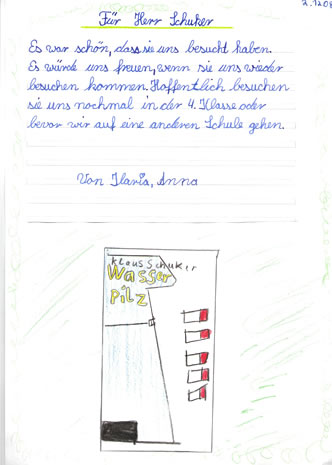 2.1208
Für Herr Schuker
Es war schön, dass sie uns besucht haben.
Es würde uns freuen, wenn sie uns wieder
besuchen kommen. Hoffentlich besuchen
sie uns nochmal in der 4. Klasse oder
bevor wir auf eine anderen Schule gehen.
Von Ilaria, Anna
Klaus Schuker
Wasser
Pilz